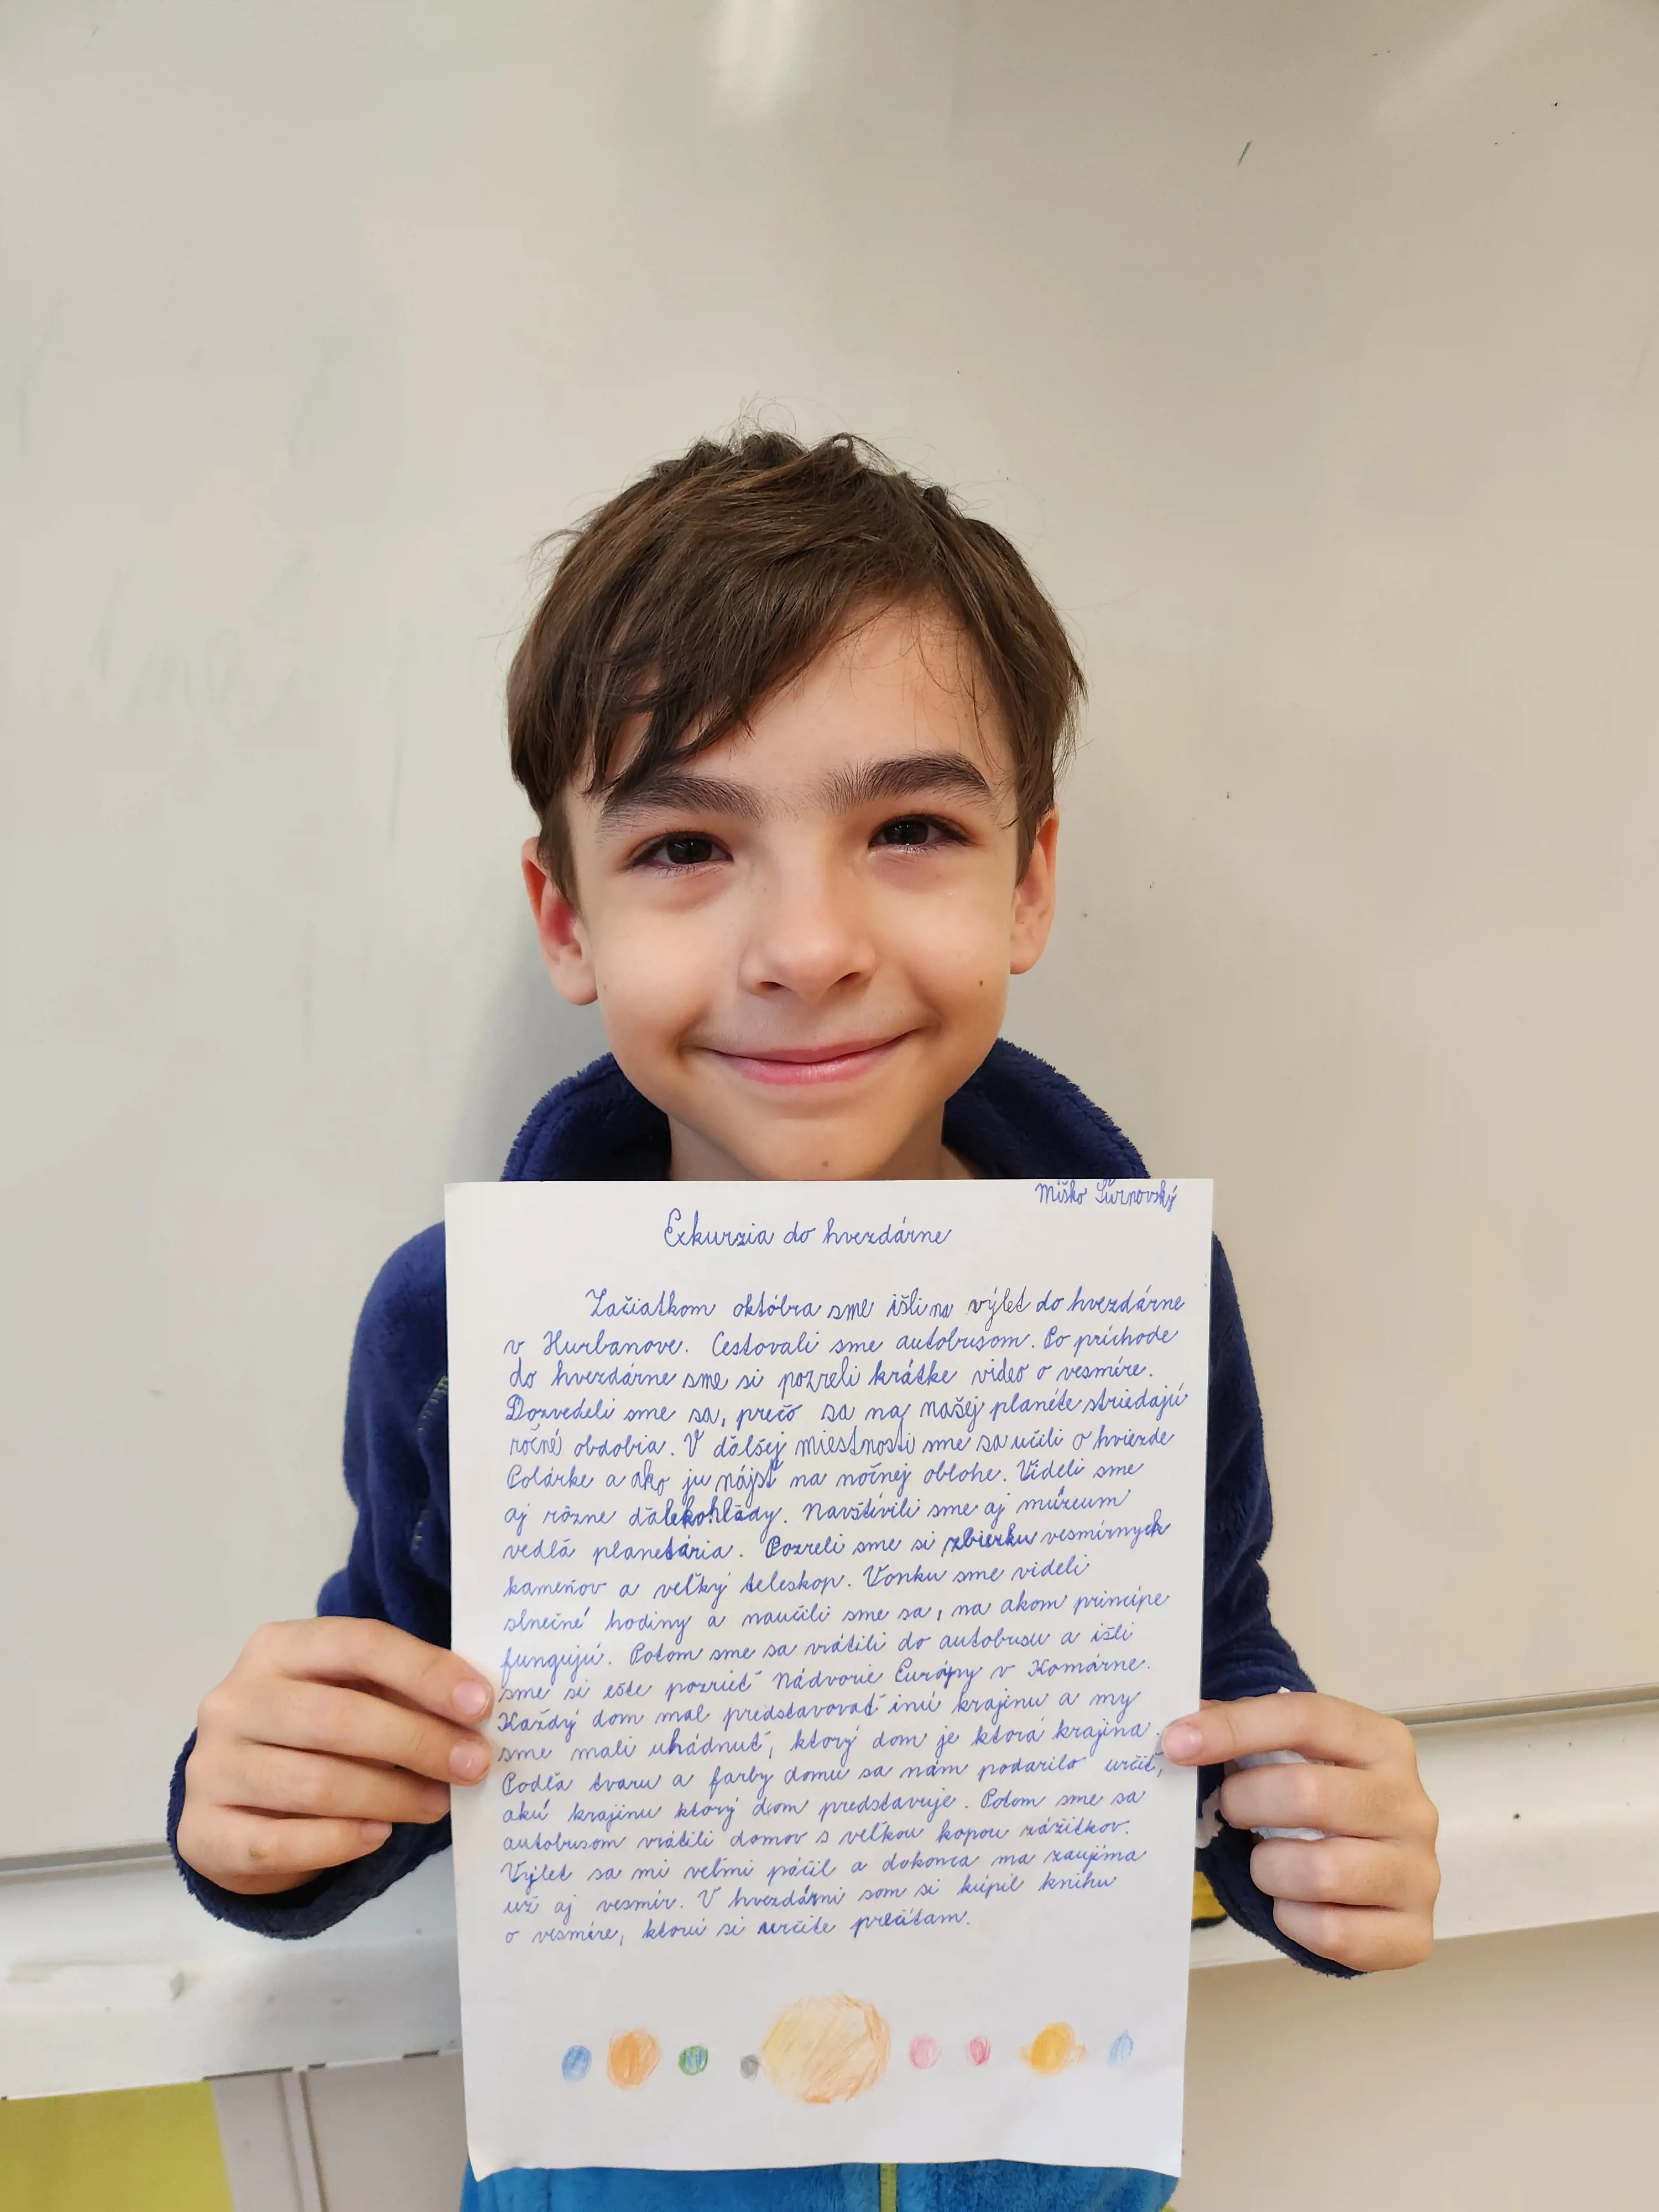 Miško Šurnovský
Exkurzia do hvezdárne
Začiatkom októbra sme išli na výlet do hvezdárne
v Hurbanove. Cestovali sme autobusom. Po príchode
do hvezdárne sme si pozreli krátke video o vesmíre.
Dozvedeli sme sa, prečo sa na našej planéte striedajú
ročné obdobia. V ďalšej miestnosti sme sa učili o hviezde
Polárke a ako ju nájsť na nočnej oblohe. Videli sme
aj rôzne ďalekohľady. Navštívili sme aj múzeum
vedľa planetária. Pozreli sme si zbierku vesmírnych
kameňov a veľký teleskop. Vonku sme videli
slnečné hodiny a naučili sme sa, na akom princípe
fungujú. Potom sme sa vrátili do autobusu a išli
sme si ešte pozrieť Nádvorie Európy v Komárne.
Každý dom mal predstavovať inú krajinu a my
sme mali uhádnuť, ktorý dom je ktorá krajina.
Podľa tvaru a farby domu sa nám podarilo určiť,
akú krajinu ktorý dom predstavuje. Potom sme sa
autobusom vrátili domov s veľkou kopou zážitkov.
Výlet sa mi veľmi páčil a dokonca ma zaujíma
už aj vesmír. V hvezdárni som si kúpil knihu
o vesmíre, ktorú si určite prečítam.